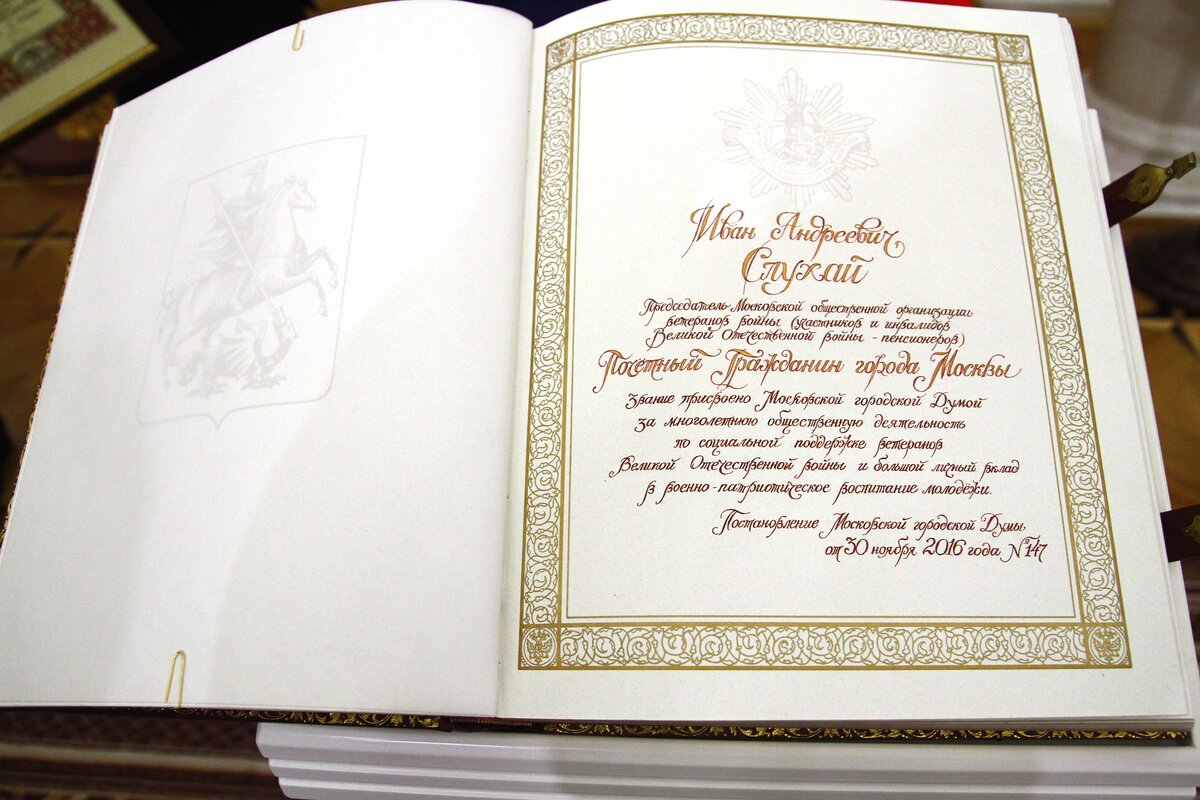 Иван Андреевич
Слухай
Председатель Московской общественной организации
ветеранов войны (участников и инвалидов
Великой Отечественной войны - пенсионеров)
Почетный Гражданин города Москвы
звание присвоено Московской городской Думой
за многолетнюю общественную деятельность
по социальной поддержке ветеранов
Великой Отечественной войны и большой личный вклад
в военно-патриотическое воспитание молодёжи.
Постановление Московской городской Думы
от 30 ноября 2016 года №147